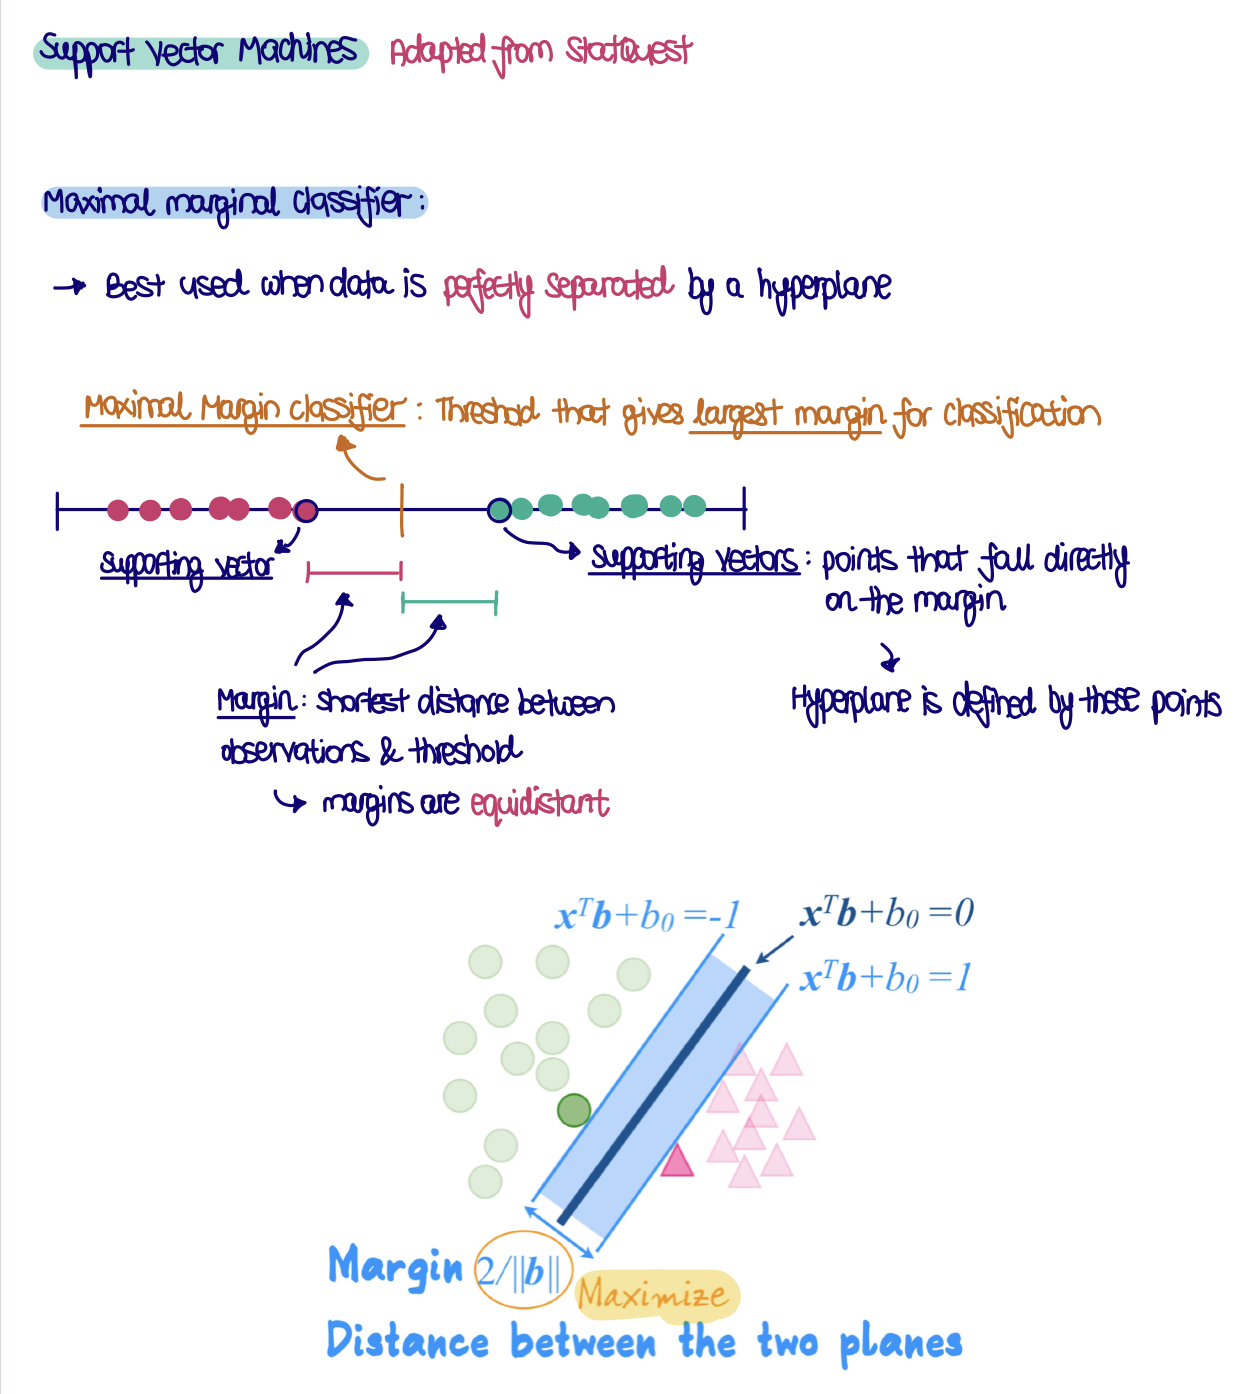 Support Vector Machines Adapted from StatQuest
Maximal marginal classifier:
→ Best used when data is perfectly separated by a hyperplane
Maximal Margin classifier: Threshold that gives largest margin for classification
Supporting vector
Supporting vectors: points that fall directly
on the margin
Margin: shortest distance between
observations & threshold
↳ margins are equidistant
Hyperplane is defined by these points
xᵀb+b₀=-1
xᵀb+b₀=0
xᵀb+b₀=1
Margin 2/||b||
Maximize
Distance between the two planes